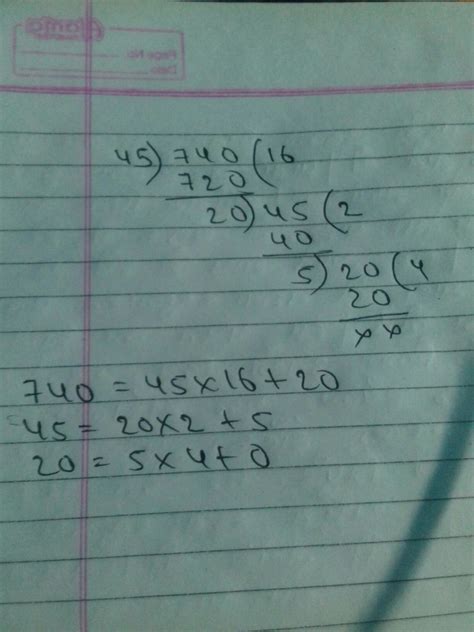 45) 740 (16
720
20) 45 (2
40
5) 20 (4
20
x x
740 = 45x16+20
45 = 20x2 + 5
20 = 5x4+0